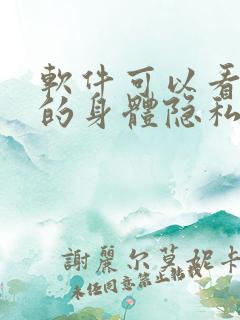 軟件可以看
的身體隐私
謝麗尔莫妮卡
未任同意禁止转载